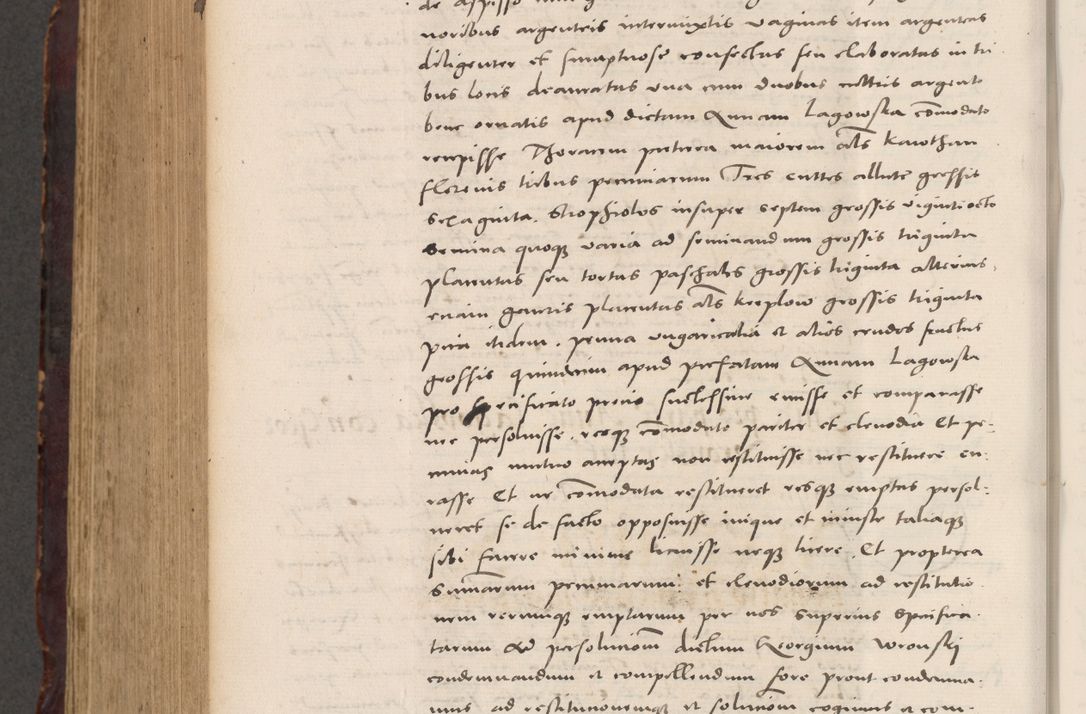 noribus argenteis intermixtis vaginas item argenteas
diligenter et sumptuose confectas seu elaboratas in tri
bus locis deauratas una cum duobus cultris argento
bene ornatis apud dictam Annam Lagowska comodato
recepisse Thoracem preterea maiorem als kawthan
florenis tribus pecuniarum Tres cuttes allute grossis
sexaginta. Strophiolos insuper septem grossis vigintiocto
Semina quoque varia ad seminandum grossis triginta
placentas seu tortas paschales grossis triginta alterius
eciam generis placentas als kreplow grossis triginta
pira itidem. pruna ungaricalia et alios crudos fructus
grossis quindecim apud prefatam Annam Lagowska
pro specificato precio successive emisse et comparasse
nec persolvisse. resque comodato pariter et clenodia Et pe-
cunias mutuo acceptas non restituisse nec restituere cu-
rasse Et ne comodata restitueret resque emptas persol-
veret se de facto opposuisse inique et iniuste taliaque
sibi facere minime licuisse neque licere. Et propterea
Summarum pecuniarum et clenodiorum ad restitutio
nem rerumque emptarum per nos superius specifica-
tarum ad persolucionem dictum Georgium Wronski
condemnandum et compellendum fore prout condemna-
mus ad restitucionemque et solucionem cogimus et com-